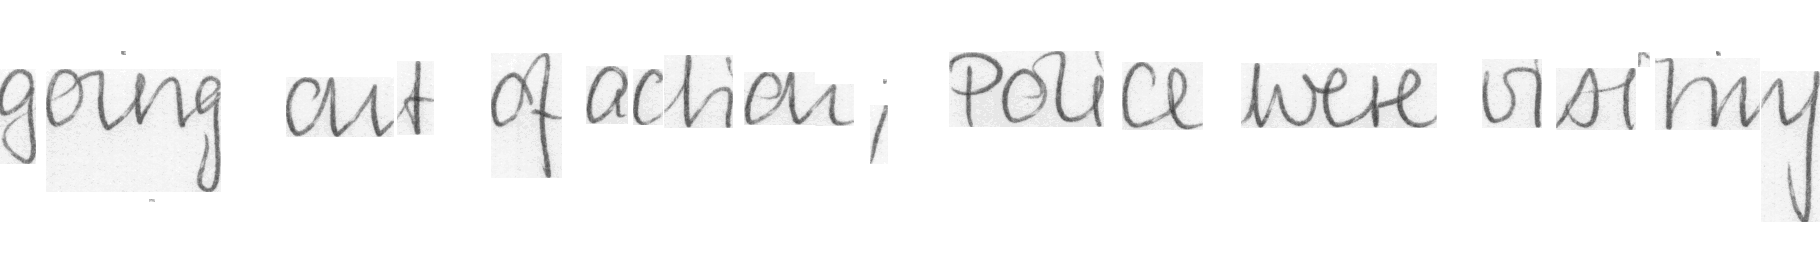 going out of action; Police were visiting